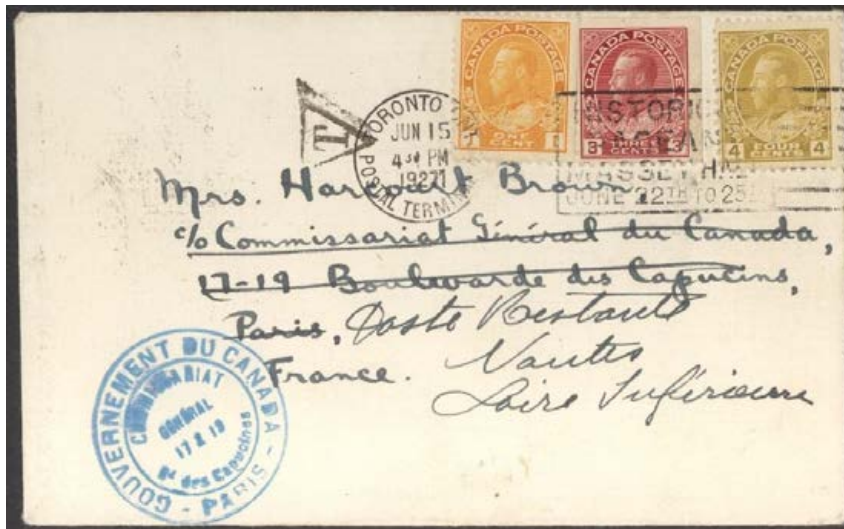 CANADA POSTAGE
ONE CENT
1
CANADA POSTAGE
3 THREE CENTS 3
CANADA POSTAGE
4 FOUR CENTS 4
T
TORONTO
JUN 15
4 30 PM
1927
POSTAL TERMINAL
HISTORIC
MASSEY
JUNE 22TH TO 25
Mrs. Harcourt Brown,
c/o Commissariat Général du Canada,
17-19 Boulevarde des Capucins,
Paris, Poste Restante
France. Nantes
Loire Inférieure
GOUVERNEMENT DU CANADA - PARIS -
COMMISSARIAT
GÉNÉRAL
17 & 19
Bd des Capucines